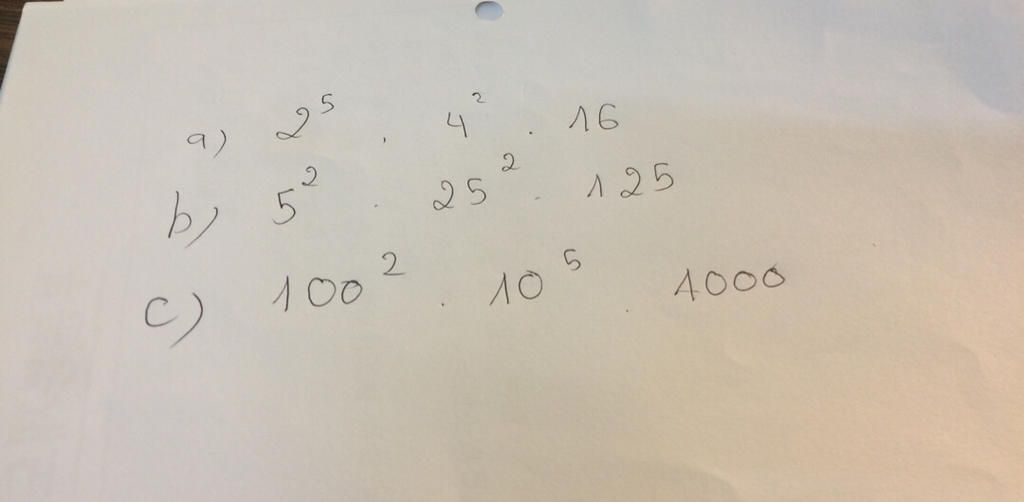 a) 2⁵ . 4² . 16
b) 5² . 25² . 125
c) 100² . 10⁵ . 1000